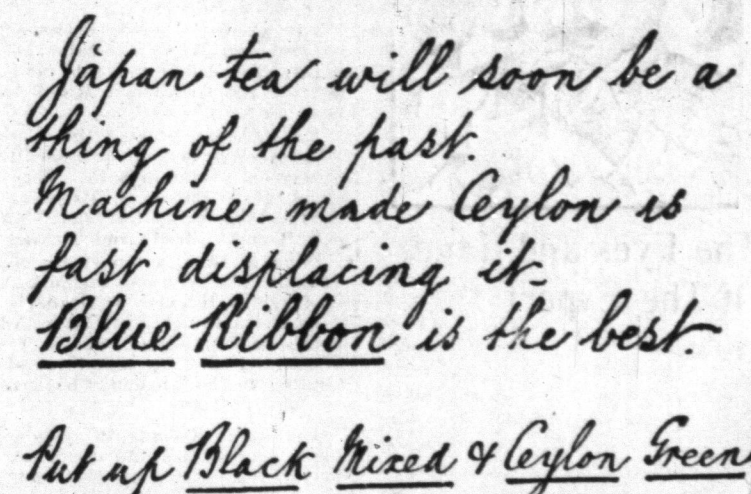 Japan tea will soon be a
thing of the past.
Machine-made Ceylon is
fast displacing it-
Blue Ribbon is the best.
Put up Black Mixed & Ceylon Green